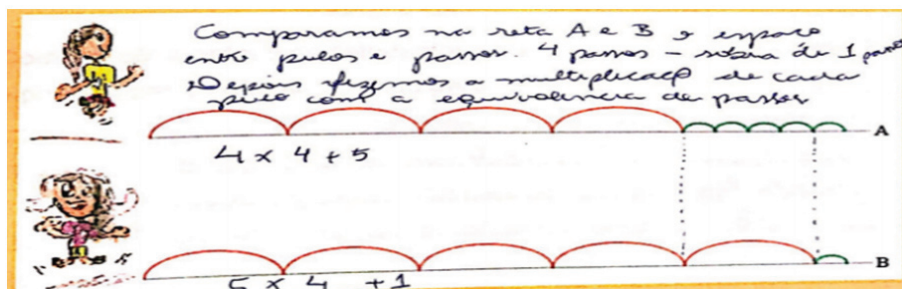 Comparamos na reta A e B o espaço
entre pulos e passos. 4 passos – sobra de 1 passo
Depois fizemos a multiplicação de cada
pulo com a equivalência de passos
A
4 x 4 + 5
5 x 4 + 1
B